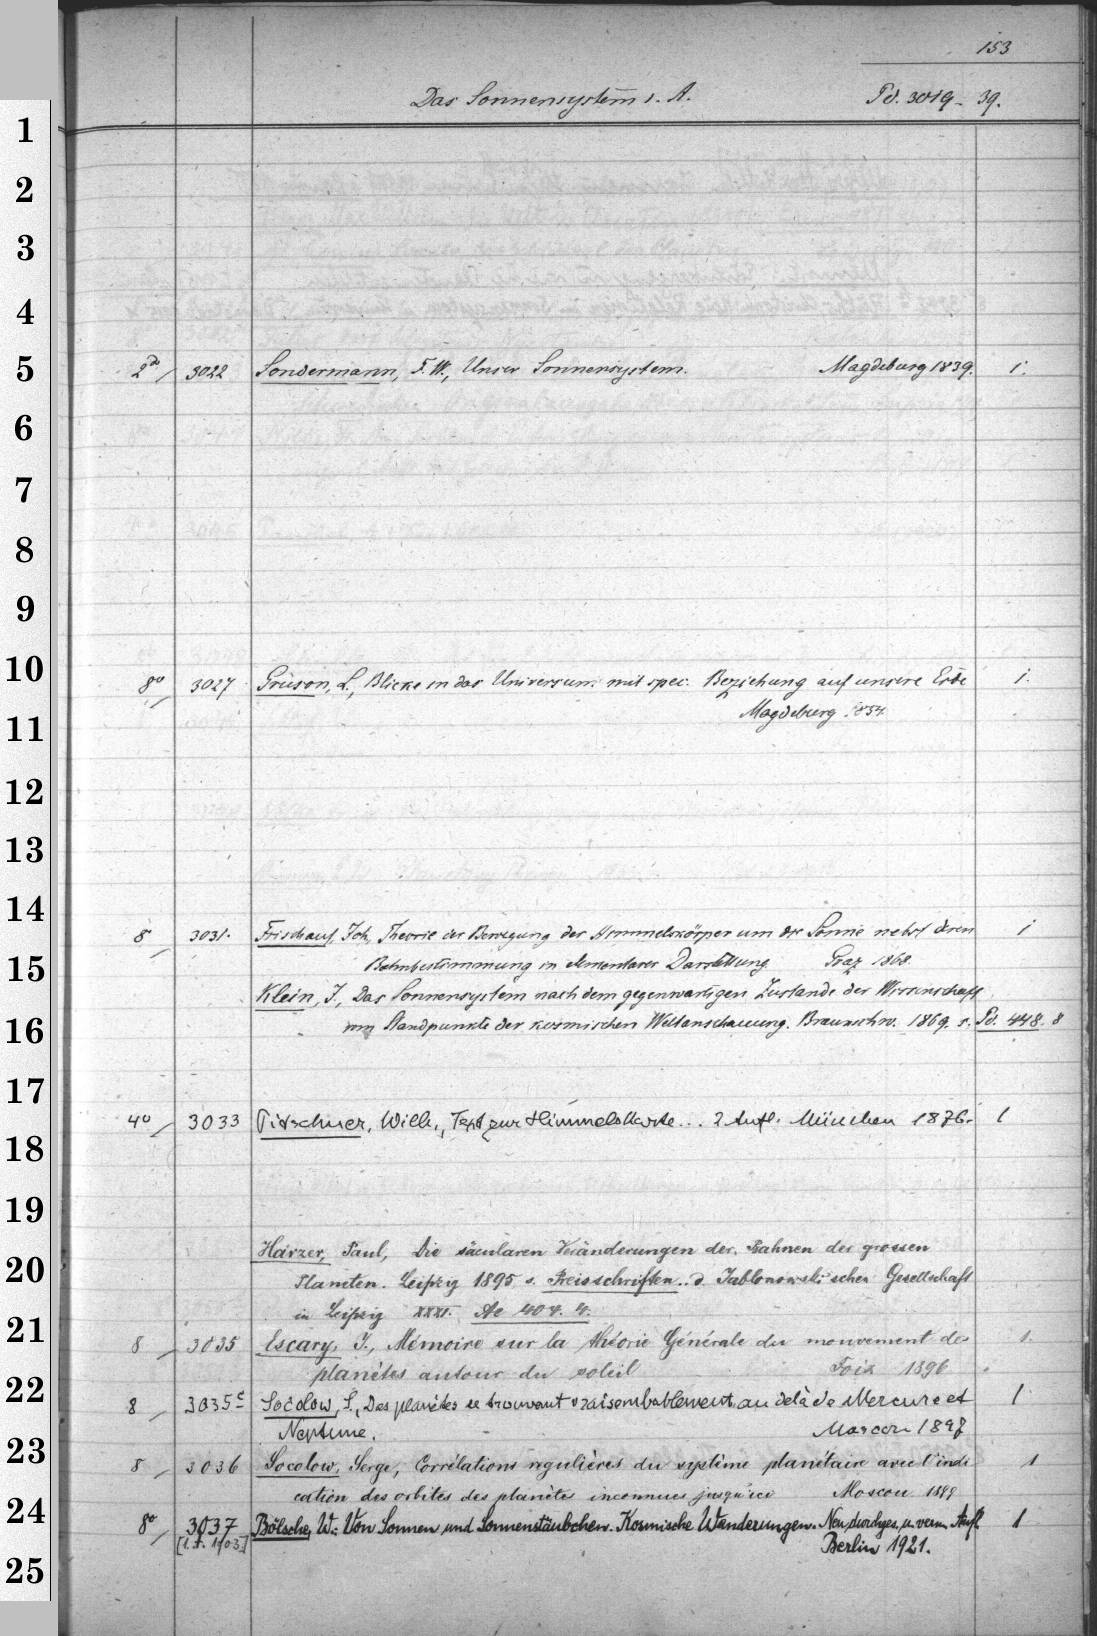 153
Das Sonnensystem s. A. Pd. 3019 - 39.
1
2
3
4
5
2° 3022 Sondermann, F. W., Unser Sonnensystem. Magdeburg 1839. 1.
6
7
8
9
10
8° 3027 Gruson, L., Blicke in das Universum mit spec. Beziehung auf unsere Erde 1.
Magdeburg 1854
11
12
13
14
8 3031. Frischauf, Joh, Theorie der Bewegung der Himmelskörper um die Sonne nebst deren 1
Bahnbestimmung in elementarer Darstellung Graz 1868.
15
Klein, J., Das Sonnensystem nach dem gegenwärtigen Zustande der Wissenschaft
vom Standpunkte der kosmischen Weltanschauung. Braunschw. 1869. s. Pd. 448. 8
16
17
4° 3033 Pitschner, Wilh., Text zur Himmelskarte... 2 Aufl. München 1876. 1
18
19
Harzer, Paul, Die säcularen Veränderungen der Bahnen der grossen
20
Planeten. Leipzig 1895 s. Preisschriften.. d. Jablonowski'schen Gesellschaft
in Leipzig XXXI. Ac 404. 4.
21
8 3035 Escary, J., Mémoire sur la théorie Générale du mouvement des 1.
planètes autour du soleil Foix 1896
22
8 3035c Socolow, S., Des planètes se trouvant vraisemblablement au delà de Mercure et 1
Neptune. Moscou 1897
23
8 3036 Socolow, Serge, Corrélations regulières du système planétaire avec l'indi 1
cation des orbites des planètes inconnues jusqu'ici Moscou 1899
24
8° 3037 Bölsche, W.: Von Sonnen und Sonnenstäubchen. Kosmische Wanderungen. Neu durchges. u. verm. Aufl. 1
[1. A. 1903] Berlin 1921.
25